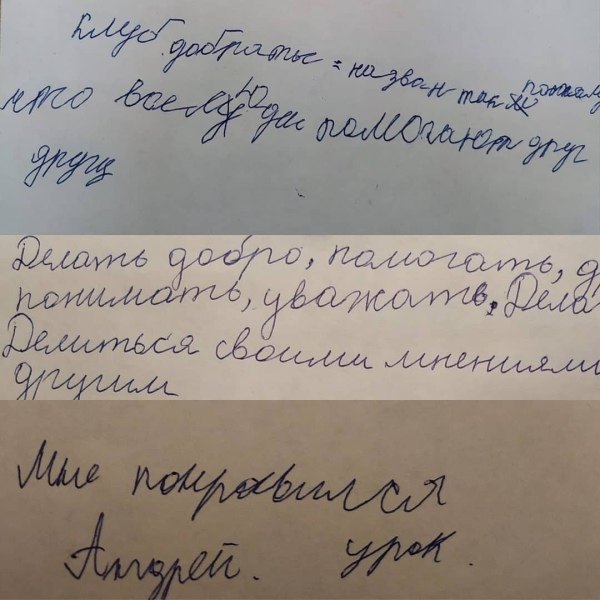 Клуб добраты = назван так потому
что всем людям помогают друг
другу
Делать добро, помогать, д
понимать, уважать. Дела
Делиться своими мнениями
другим
Мне понравился
Андрей. урок.